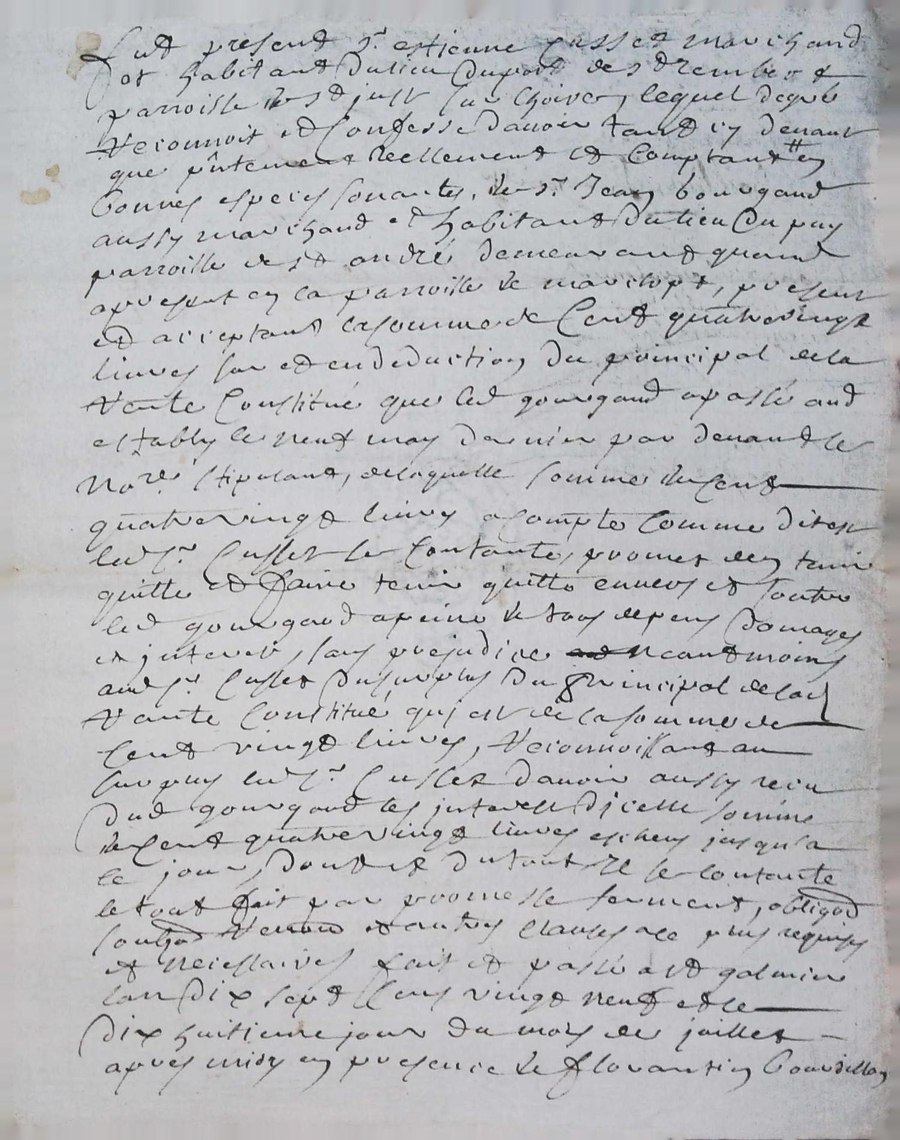 fut present sr estienne Cusset marchand
et habitant du lieu du port de
parroisse de st just sur loire, lequel de gré
reconnoit et confesse d'avoir tant cy devant
que pntement reellement et comptant en
bonnes especes sonantes, de sr Jean gourgaud
aussy marchand et habitant du lieu du puy
parroisse de st andré demeurant quand
a present en la parroisse de marclopt, present
et acceptant la somme de Cent quatrevingt
livres sur et en deduction du principal de la
rente Constitué que led gourgaud a passé aud
estably le neuf may dernier par devant le
nore stipulant, de laquelle somme de Cent
quatrevingt livres a compte comme dit est
led sr Cusset se contante, promet den tenir
quitte et faire tenir quitte envers et contre
led gourgaud a peine de tous depens domages
et interets, sans prejudice neantmoins
aud sr Cusset du surplus du principal de lad
rente Constitué qui est de la somme de
Cent vingt livres, reconnoissant au
surplus led sr Cusset d'avoir aussy receu
dud gourgaud les interest d'icelle somme
de Cent quatrevingt livres escheus jusqu'a
ce jour, dont et du tout il se contante
le tout fait par promesse serment, obligaon
soubmon renon et autres clauses a ce plus requises
et necessaires fait et passé a st galmier
lan dix sept Cens vingt neuf et le
dix huitieme jour du mois de juillet
apres midy en presence de florantin Bourdillon